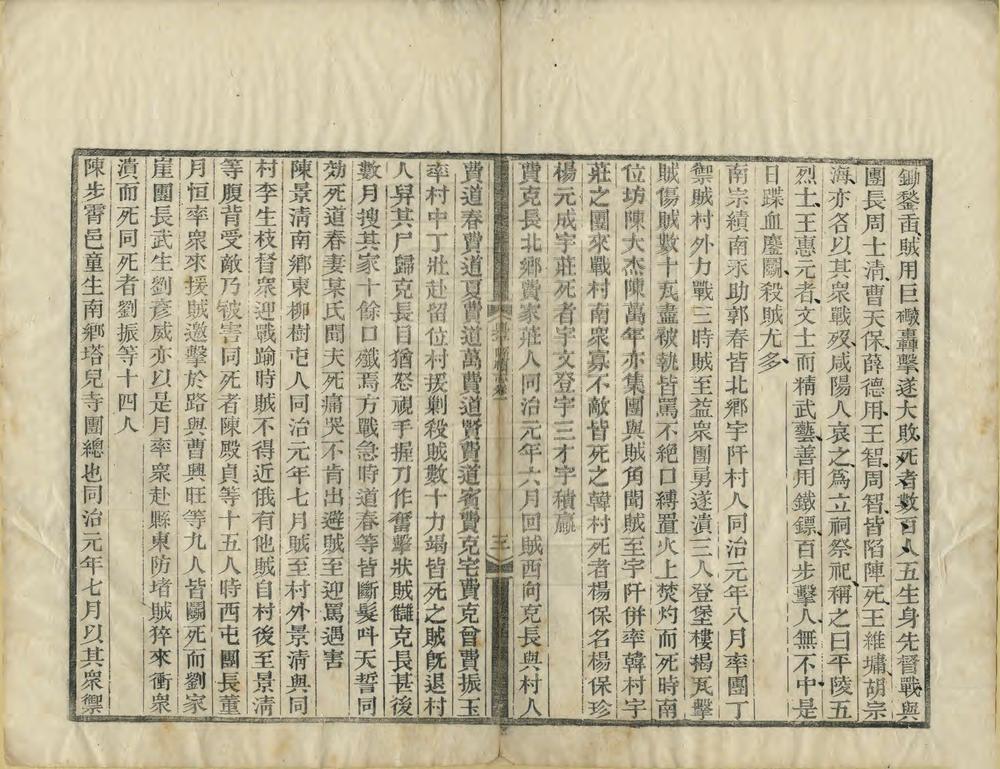 鋤鍪臿賊用巨礮轟擊遂大敗死者數百人五生身先督戰與
團長周士清曹天保薛德用王智周智皆陷陣死王維墉胡宗
海亦各以其衆戰歿咸陽人哀之爲立祠祭祀稱之曰平陵五
烈士王惠元者文士而精武藝善用鐵鏢百步擊人無不中是
日蹀血鏖鬭殺賊尤多
南宗績南永助郭春皆北鄉宇阡村人同治元年八月率團丁
禦賊村外力戰三時賊至益衆團勇遂潰三人登堡樓揭瓦擊
賊傷賊數十瓦盡被執皆罵不絕口縛置火上焚灼而死時南
位坊陳大杰陳萬年亦集團與賊角聞賊至宇阡併率韓村宇
莊之團來戰村南衆寡不敵皆死之韓村死者楊保名楊保珍
楊元成宇莊死者宇文登宇三才宇積贏
費克長北鄉費家莊人同治元年六月回賊西向克長與村人
三
費道春費道夏費道萬費道賢費道賓費克宅費克曾費振玉
率村中丁壯赴留位村援剿殺賊數十力竭皆死之賊既退村
人舁其尸歸克長目猶怒視手握刀作奮擊狀賊讎克長甚後
數月搜其家十餘口殲焉方戰急時道春等皆斷髮呌天誓同
効死道春妻某氏聞夫死痛哭不肯出避賊至迎罵遇害
陳景清南鄉東柳樹屯人同治元年七月賊至村外景清與同
村李生枝督衆迎戰踰時賊不得近俄有他賊自村後至景清
等腹背受敵乃被害同死者陳殿貞等十五人時西屯團長董
月恒率衆來援賊邀擊於路與曹興旺等九人皆鬭死而劉家
崖團長武生劉彥威亦以是月率衆赴縣東防堵賊猝來衝衆
潰而死同死者劉振等十四人
陳步霄邑童生南鄉塔兒寺團總也同治元年七月以其衆禦